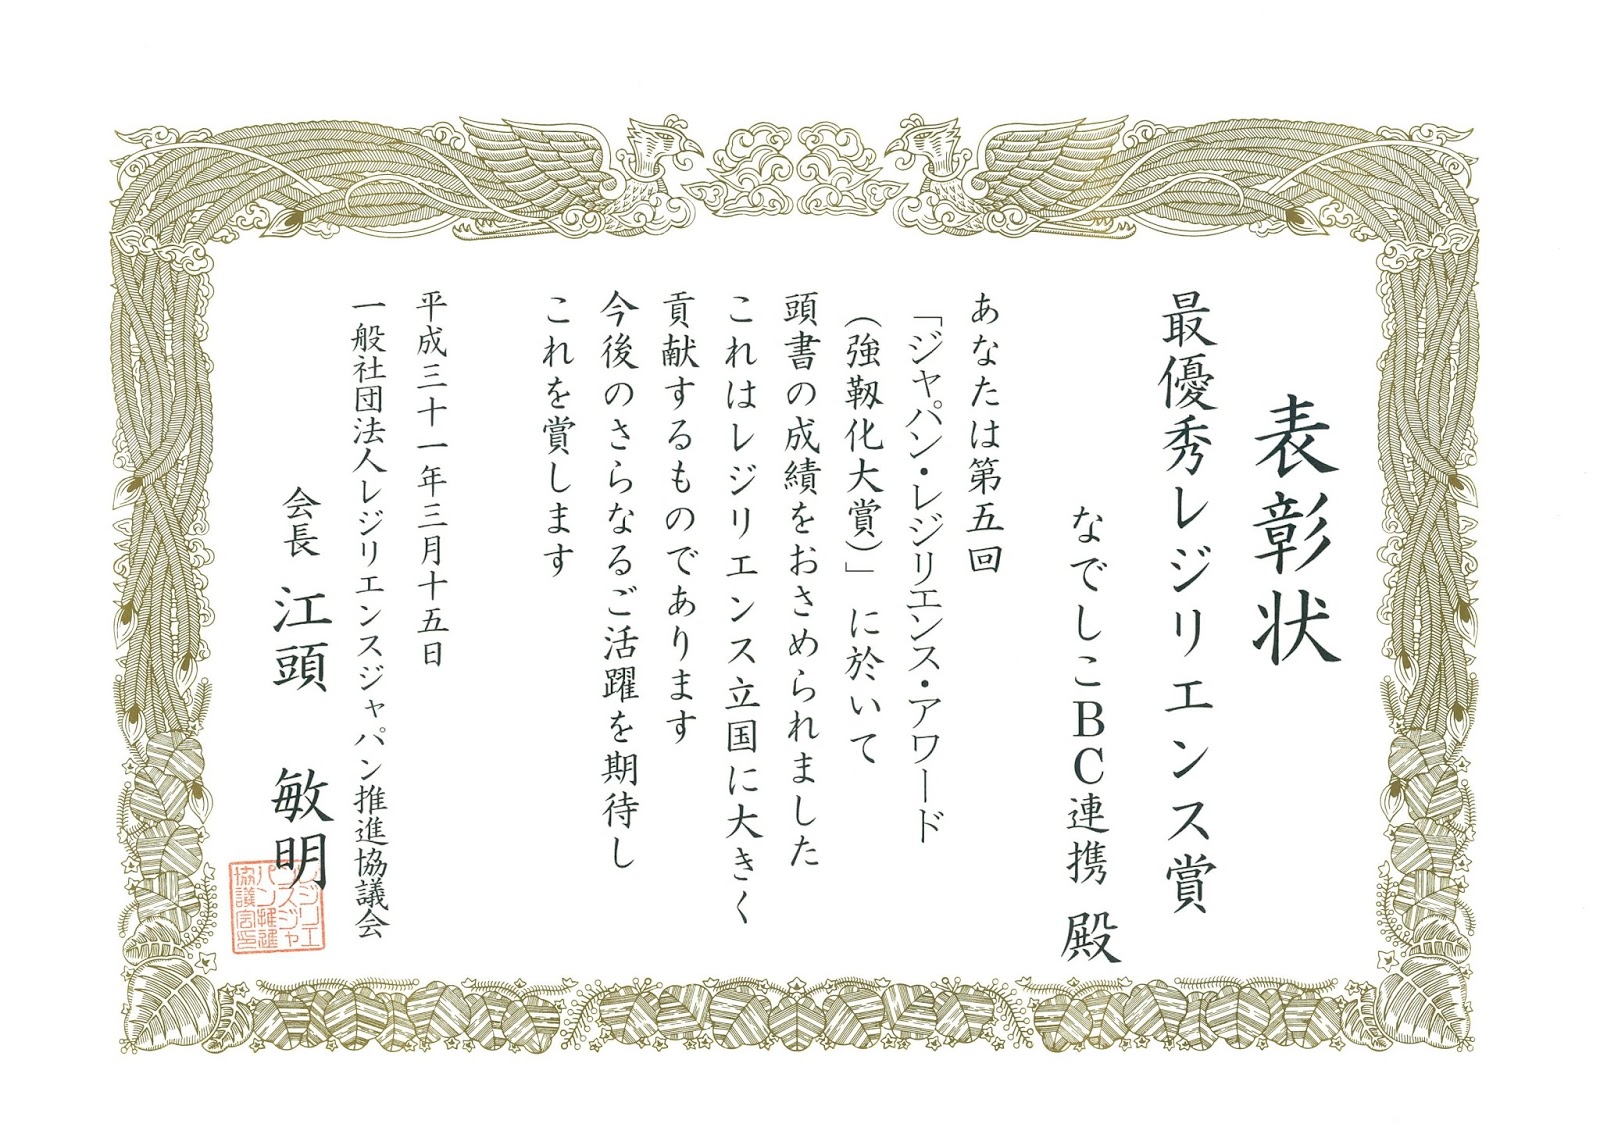 表彰状
最優秀レジリエンス賞
なでしこBC連携 殿
あなたは第五回
「ジャパン・レジリエンス・アワード
(強靱化大賞)」に於いて
頭書の成績をおさめられました
これはレジリエンス立国に大きく
貢献するものであります
今後のさらなるご活躍を期待し
これを賞します
平成三十一年三月十五日
一般社団法人レジリエンスジャパン推進協議会
会長 江頭 敏明
レジリエ
ンスジャ
パン推進
協議会印